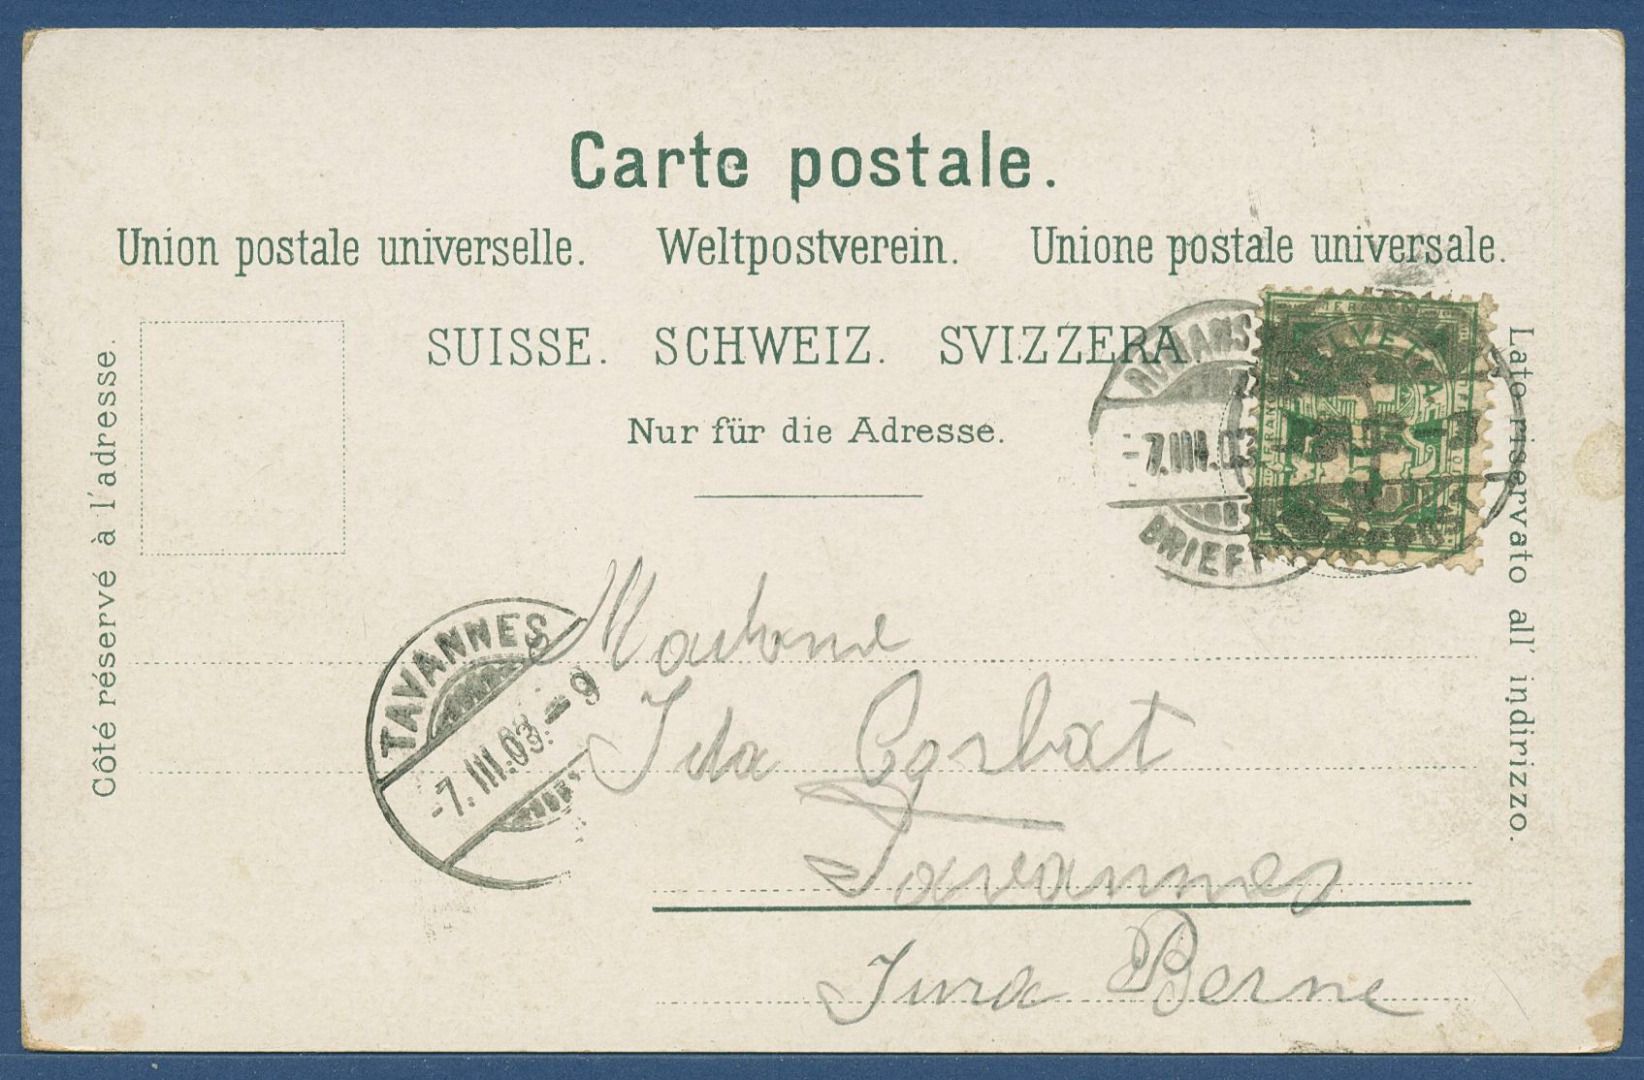 Carte postale.
Union postale universelle. Weltpostverein. Unione postale universale.
SUISSE. SCHWEIZ. SVIZZERA.
Nur für die Adresse.
Côté réservé à l'adresse.
Lato riservato all' indirizzo.
-7.III.03
BRIEF
HELVETIA
FRANCO
TAVANNES
-7.III.03.-9
Madame
Ida
Tavannes
Jura Berne